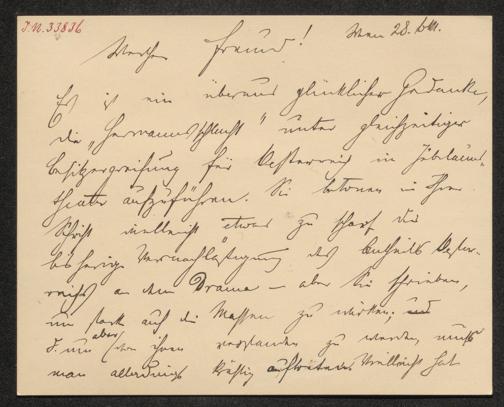 I.N. 33836
Werther Freund! Wien 28. Okt.
Es ist ein überaus glücklicher Gedanke,
die „Hermannsschlacht“ unter gleichzeitiger
Besitzergreifung für Oesterreich im Jubiläums-
theater aufzuführen. Sie betonen in Ihrer
Schrift vielleicht etwas zu scharf die
bisherige Vernachlässigung des Antheils Oester-
reichs an dem Drama – aber Sie schrieben,
um stark auf die Massen zu wirken; und
um aber schon ihnen verstanden zu werden, muß
man allerdings kräftig auftreten. Vielleicht hat